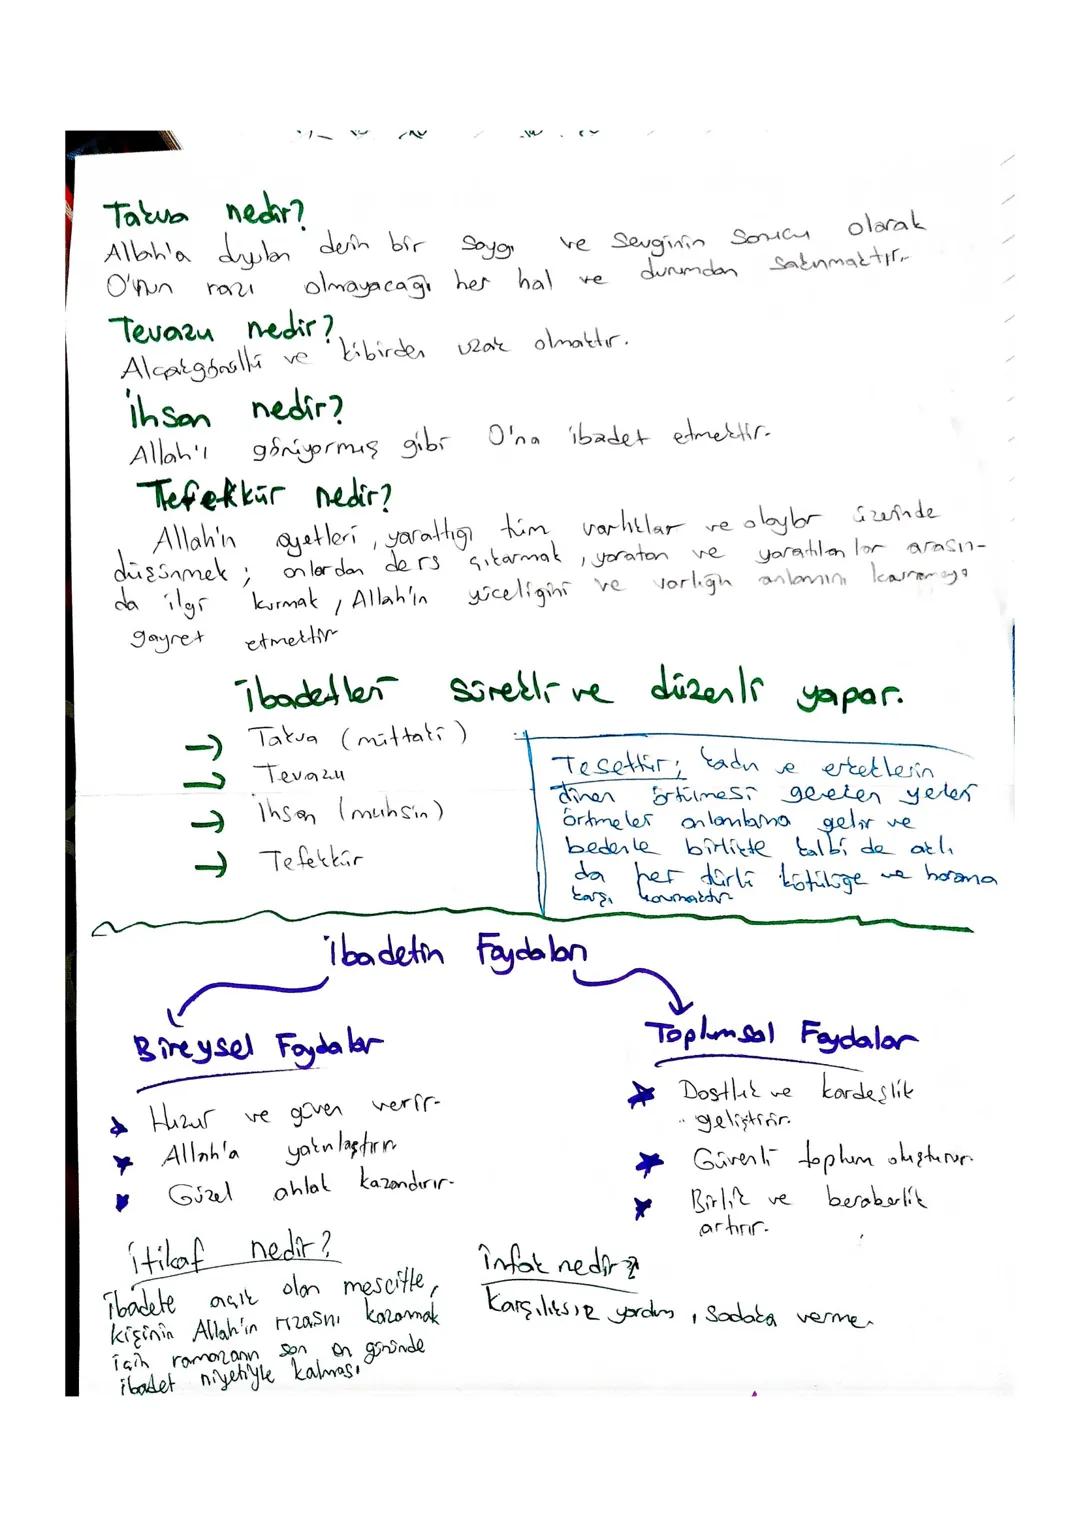 Takva nedir?
Allah'a duyulan derin bir saygı ve sevginin sonucu olarak
O'nun razı olmayacağı her hal ve durumdan sakınmaktır.
Tevazu nedir?
Alçakgönüllü ve kibirden uzak olmaktır.
İhsan nedir?
Allah'ı görüyormuş gibi O'na ibadet etmektir.
Tefekkür nedir?
Allah'ın ayetleri, yarattığı tüm varlıklar ve olaylar üzerinde
düşünmek; onlardan ders çıkarmak, yaratan ve yaratılanlar arasın-
da ilgi kurmak, Allah'ın yüceliğini ve varlığın anlamını kavramaya
gayret etmektir
İbadetleri sürekli ve düzenli yapar.
→ Takva (müttaki)
→ Tevazu
→ İhsan (muhsin)
→ Tefekkür
Tesettür; kadın ve erkeklerin
dinen örtülmesi gereken yerleri
örtmeleri anlamına gelir ve
bedenle birlikte kalbi de aklı
da her türlü kötülüğe ve harama
karşı korumaktır
İbadetin Faydaları
Bireysel Faydalar
Huzur ve güven verir.
Allah'a yakınlaştırır.
Güzel ahlak kazandırır.
Toplumsal Faydalar
Dostluk ve kardeşlik
geliştirir.
Güvenli toplum oluşturur.
Birlik ve beraberlik
artırır.
İtikaf nedir?
İbadete açık olan mescitte,
kişinin Allah'ın rızasını kazanmak
için ramazanın son on gününde
ibadet niyetiyle kalması
İnfak nedir?
Karşılıksız yardım, Sadaka verme.